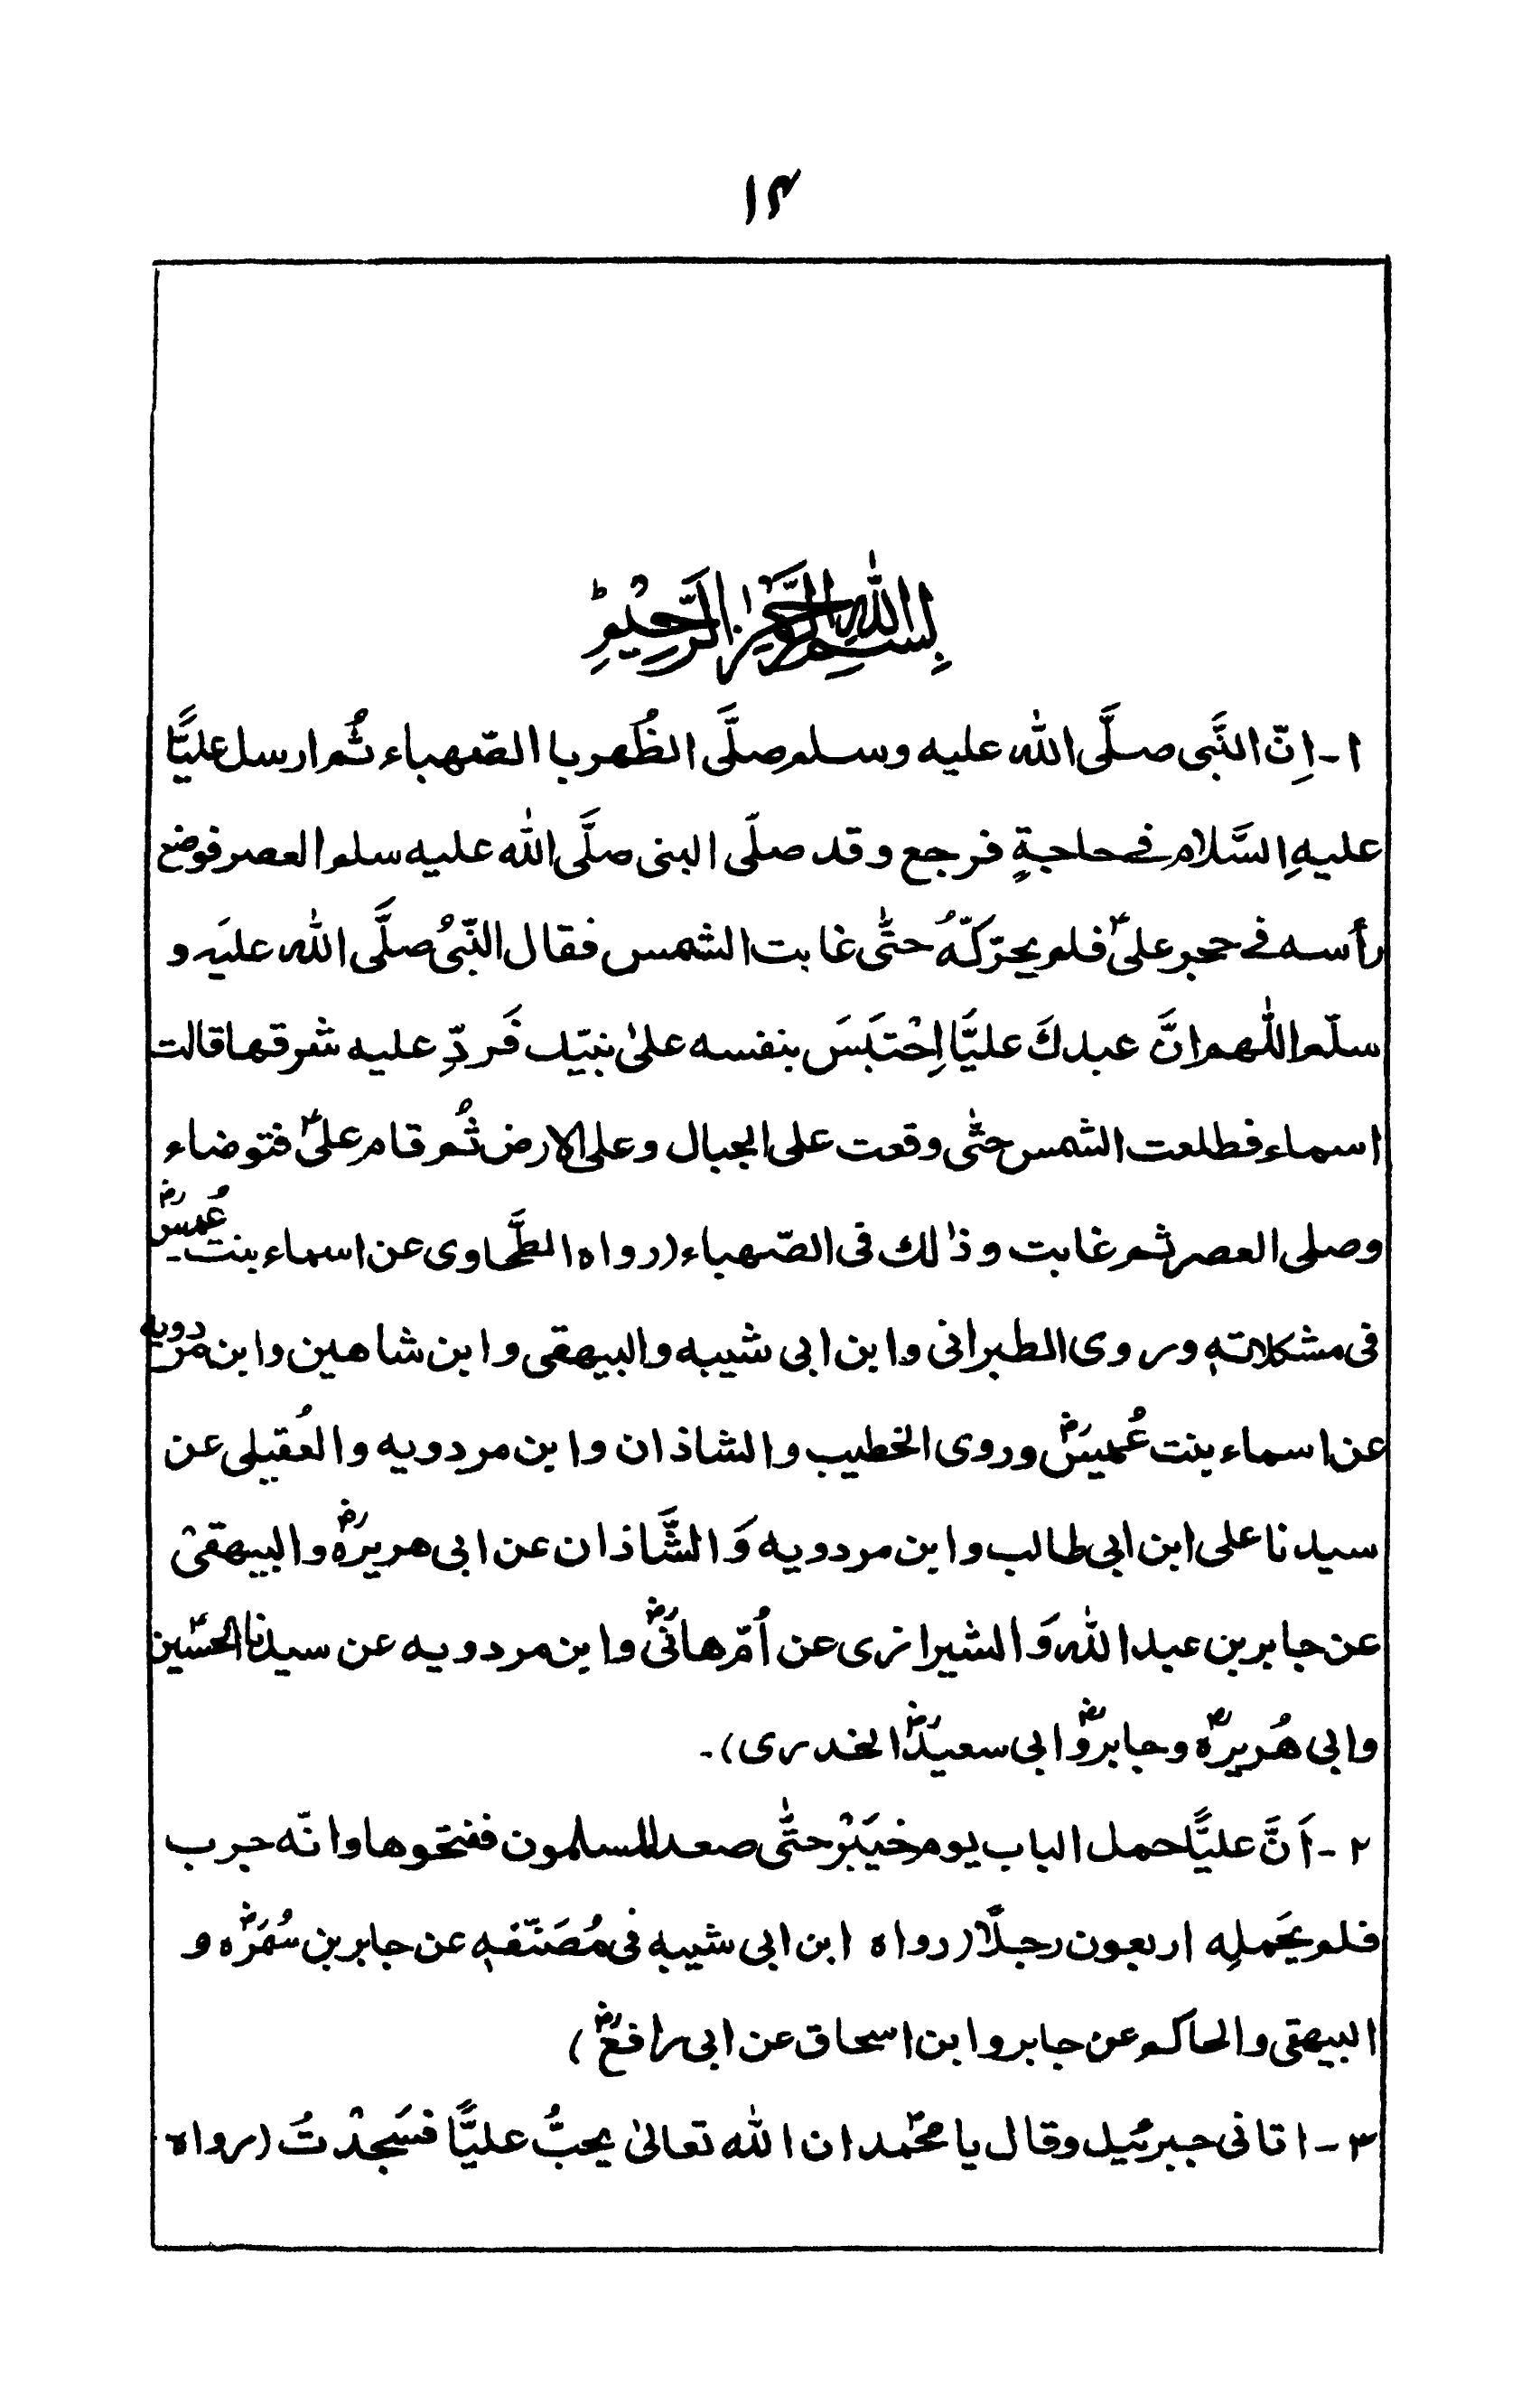 ۱۴
بِسْمِ اللّٰهِ الرَّحْمٰنِ الرَّحِيْمِ ط
۱۔ اِنّ النَّبی صلَّی الله علیه وسلم صلَّی الظُهر با الصّهباء ثُم ارسل علیًّا
علیهِ السَّلام فے حاجةٍ فرجع وقد صلّی البنی صلَّی الله علیه سلم العصر فوضع
رأسه فے حجر علیؑ فلم یحرّکّهُ حتّٰی غابت الشمس فقال النّبیُ صلَّی الله علیَه و
سلّم اللّٰهم انَّ عبدكَ علیًّا اِحْتَبَسَ بنفسه علیٰ نبیّك فَردِّ علیه شرقها قالت
اسماء فطلعت الشمس حتّٰی وقعت علی الجبال وعلی الارض ثُم قام علیؑ فتوضاء
وصلی العصر ثم غابت وذٰلك فی الصّهباء (رواه الطَّحاوی عن اسماء بنت عُمیسؓ
فی مشکلاتهٖ وروی الطبرانی وابن ابی شیبه والبیهقی وابن شاهین وابن مردویه
عن اسماء بنت عُمیسؓ وروی الخطیب والشاذان وابن مردویه والعُقیلی عن
سیدنا علی ابن ابی طالب وابن مردویه وَالشَّاذان عن ابی هریرهؓ والبیهقیْ
عن جابر بن عبد الله وَالشیرازی عن اُمّ هانیؓ وابن مردویه عن سیدنا الحسؑین
وابی هُریرهؓ وجابرؓ وابی سعیدؓ الخدری)۔
۲۔ اَنَّ علیًّا حمل الباب یوم خیَبْر حتّٰی صعد المسلمون ففتحوها وانّه جرب
فلم یَحملِه اربعون رجلًا (رواه ابن ابی شیبه فی مُصَنّفهٖ عن جابر بن سُمَرهؓ و
البیهقی والحاکم عن جابر وابن اسحاق عن ابی رافعؓ)
۳۔ اتانی جبرئیل وقال یا محمّد ان الله تعالیٰ یحبُّ علیًّا فسَجدْتُ (رواه